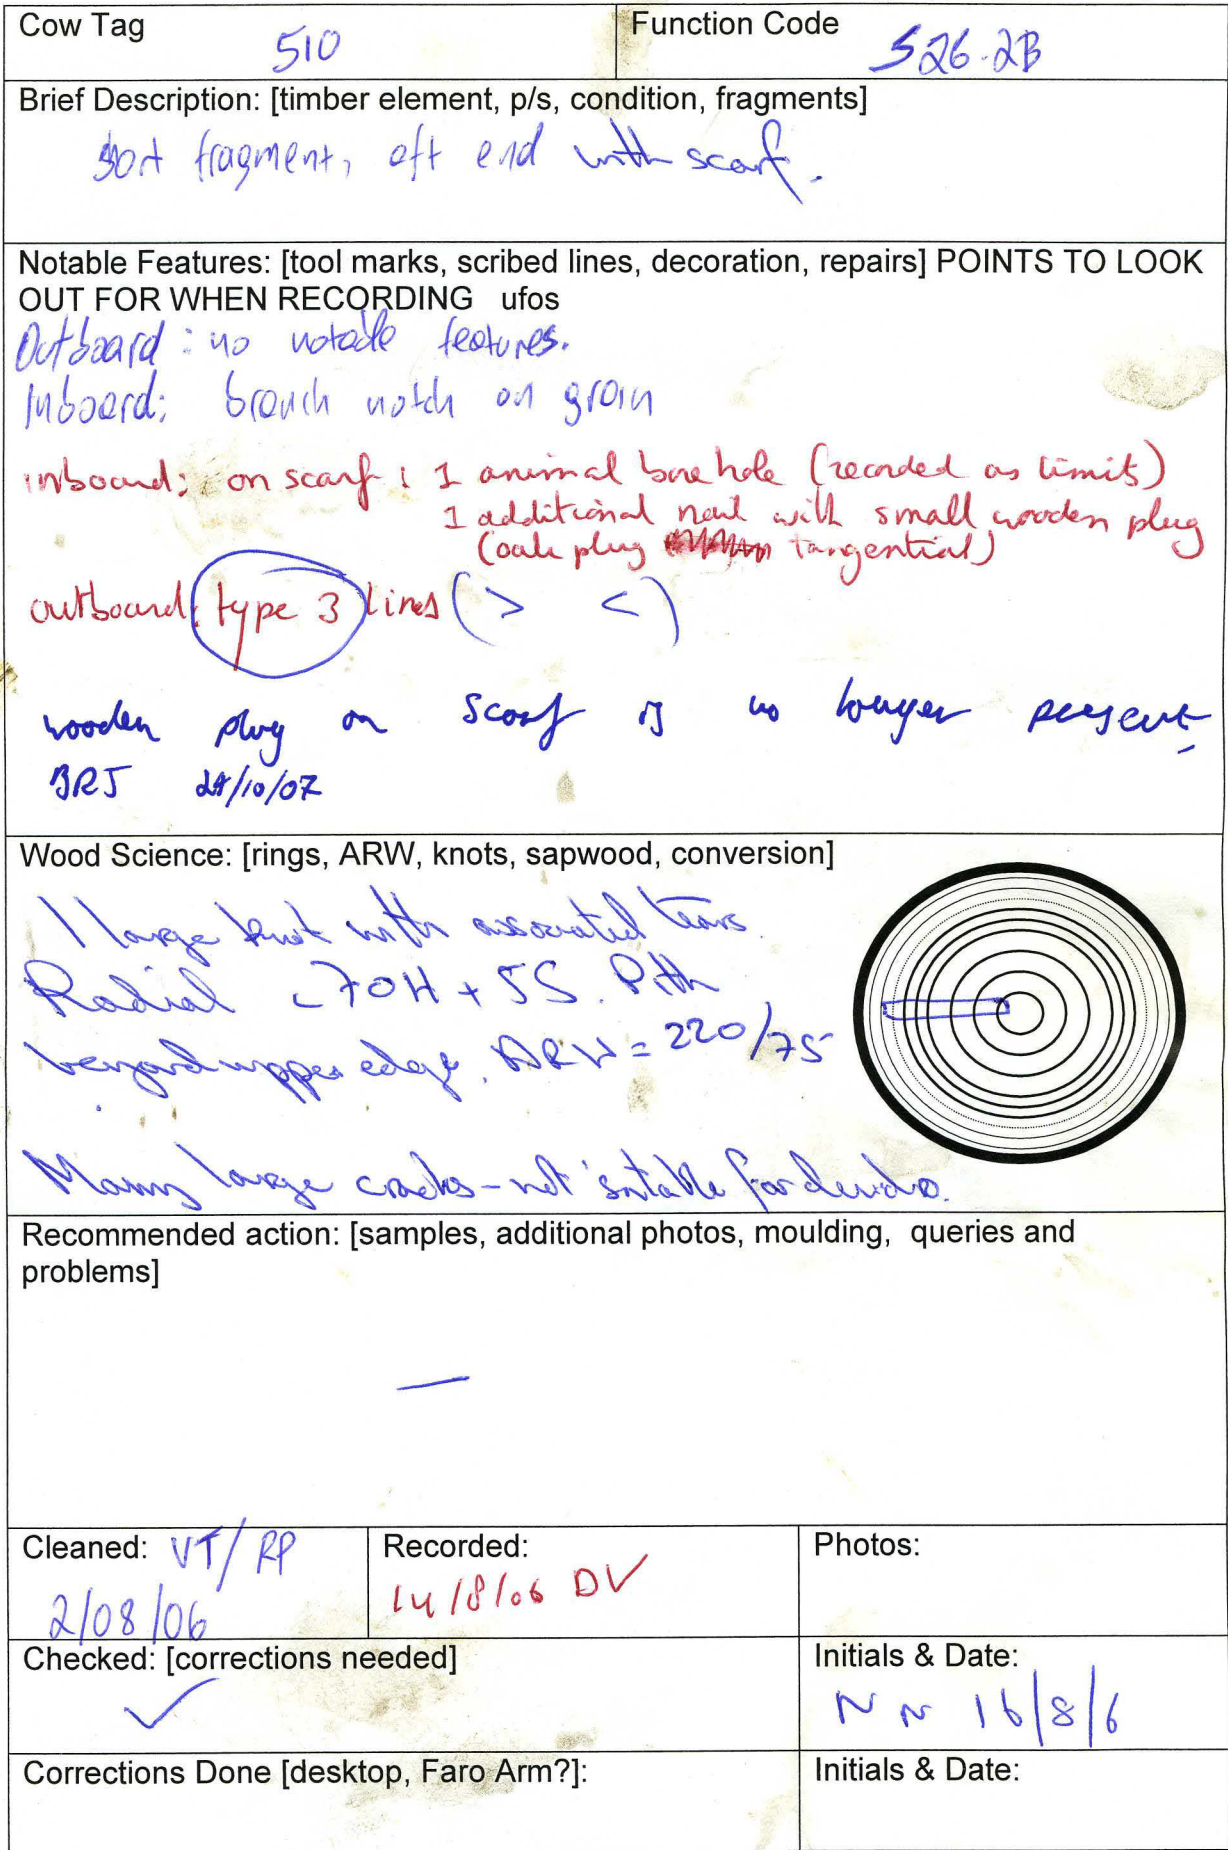 Cow Tag 510 Function Code S26.2B
Brief Description: [timber element, p/s, condition, fragments]
short fragment, aft end with scarf.
Notable Features: [tool marks, scribed lines, decoration, repairs] POINTS TO LOOK
OUT FOR WHEN RECORDING ufos
Outboard: no notable features.
Inboard: branch notch on grain
inboard: on scarf: 1 animal bore hole (recorded as limit)
1 additional nail with small wooden plug
(oak plug tangential)
outboard: type 3 lines (> <)
wooden plug on scarf is no longer present
BRJ 24/10/07
Wood Science: [rings, ARW, knots, sapwood, conversion]
1 large knot with associated tears.
Radial c70H + 5S. Pith
beyond upper edge. ARW = 220/75
Many large cracks - not suitable for dendro.
Recommended action: [samples, additional photos, moulding, queries and
problems]
—
Cleaned: VT/RP Recorded: Photos:
2/08/06 14/8/06 DV
Checked: [corrections needed] Initials & Date:
✓ NN 16/8/6
Corrections Done [desktop, Faro Arm?]: Initials & Date: